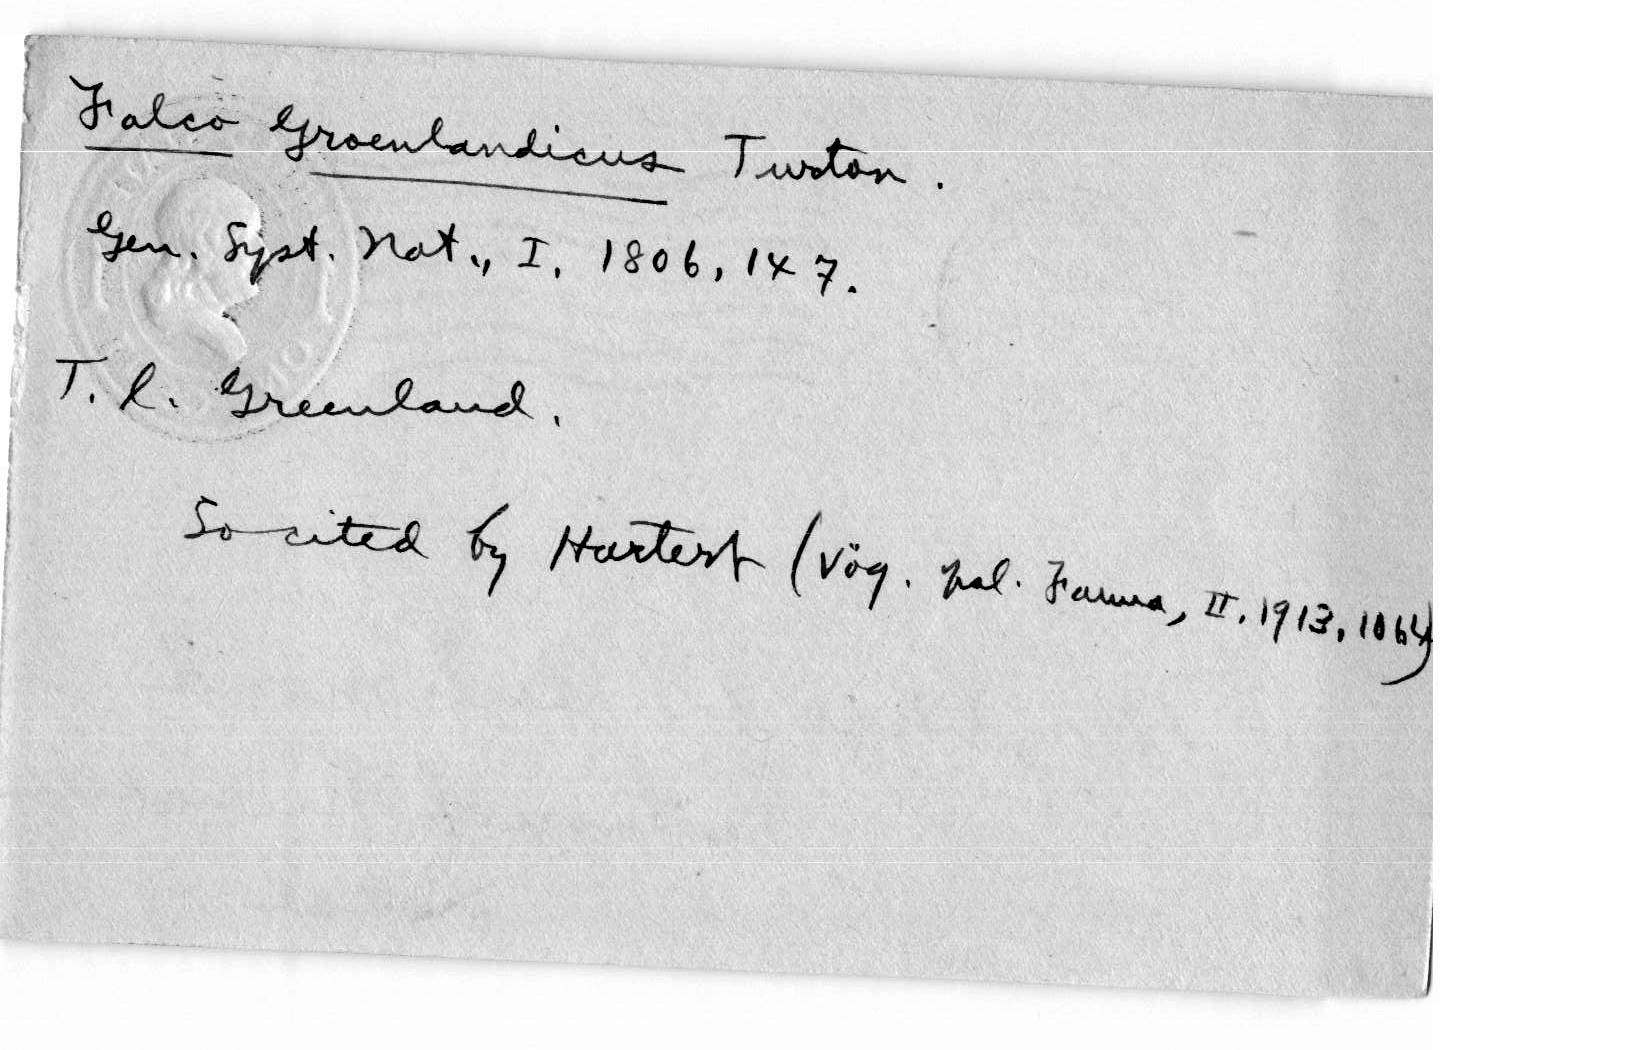 Falco Groenlandicus Turton.
Gen. Syst. Nat., I, 1806, 147.
T. l. Greenland.
So cited by Hartert (Vög. pal. Fauna, II, 1913, 1064)